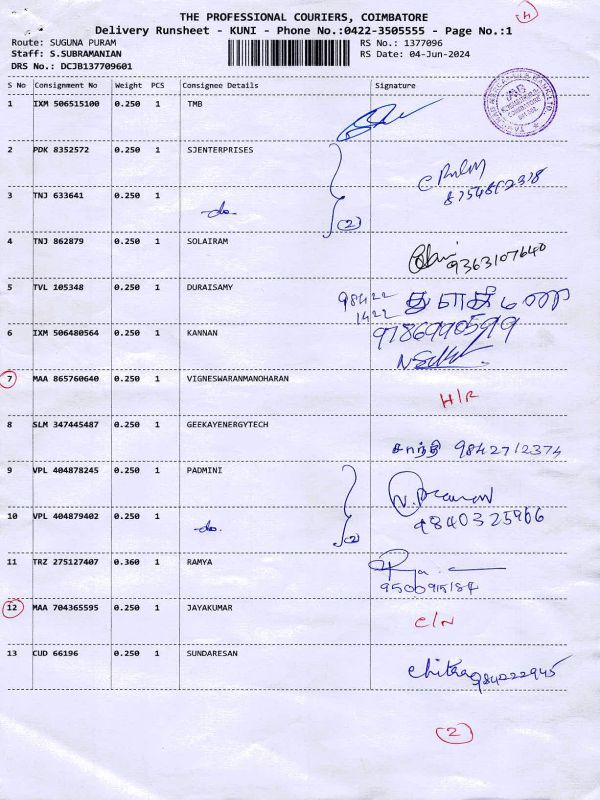 4
THE PROFESSIONAL COURIERS, COIMBATORE
Delivery Runsheet - KUNI - Phone No.:0422-3505555 - Page No.:1
Route: SUGUNA PURAM RS No.: 1377096
Staff: S.SUBRAMANIAN RS Date: 04-Jun-2024
DRS No.: DCJB137709601
S No Consignment No Weight PCS Consignee Details Signature
1 IXM 506515100 0.250 1 TMB
2 PDK 8352572 0.250 1 SJENTERPRISES
3 TNJ 633641 0.250 1 -do- (2)
4 TNJ 862879 0.250 1 SOLAIRAM 9363107640
5 TVL 105348 0.250 1 DURAISAMY 98422
1422
6 IXM 506480564 0.250 1 KANNAN 9786990599
7 MAA 865760640 0.250 1 VIGNESWARANMANOHARAN H/R
8 SLM 347445487 0.250 1 GEEKAYENERGYTECH சாந்தி 9842712374
9 VPL 404878245 0.250 1 PADMINI
10 VPL 404879402 0.250 1 -do- (2) 9840325966
11 TRZ 275127407 0.360 1 RAMYA Ramya
9500915184
12 MAA 704365595 0.250 1 JAYAKUMAR C/N
13 CUD 66196 0.250 1 SUNDARESAN chitra 984222945
2